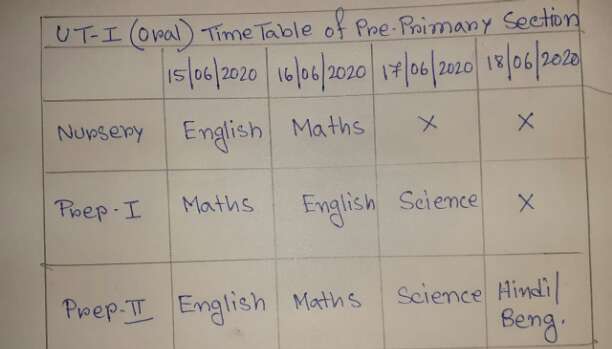 UT-I (Oral) Time Table of Pre-Primary Section
15/06/2020 16/06/2020 17/06/2020 18/06/2020
Nursery English Maths X X
Prep-I Maths English Science X
Prep-II English Maths Science Hindi/
Beng.